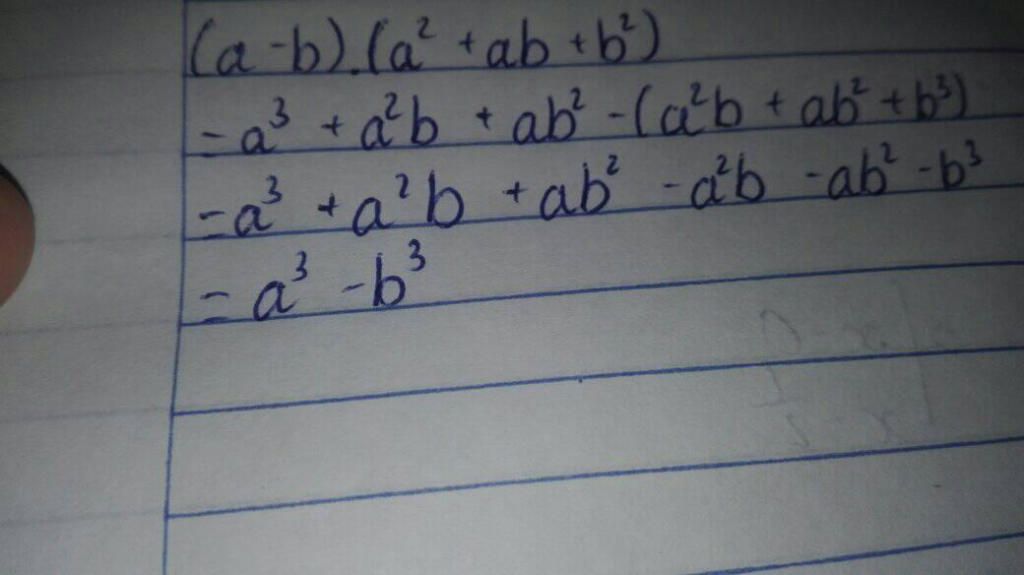 (a-b).(a² + ab + b²)
= a³ + a²b + ab² - (a²b + ab² + b³)
= a³ + a²b + ab² - a²b - ab² - b³
= a³ - b³